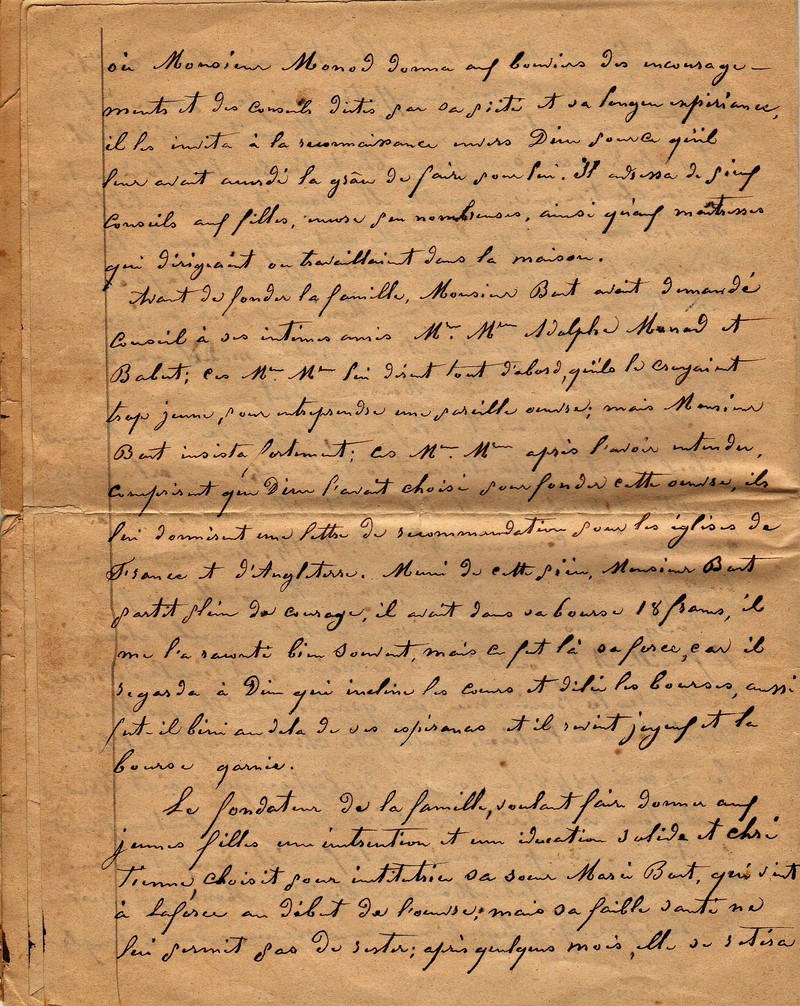 où Monsieur Monod donna aux bouviers des encourage-
ments et des conseils dictés par sa piété et sa longue expériance,
il les invita à la reconnaissance envers Dieu pour ce qu'il
leur avait accordé la grâce de faire pour lui. Il adressa de pieux
conseils aux filles, encore peu nombreuses, ainsi qu'aux maîtresses
qui dirigeaint ou travaillaint dans la maison.
Avant de fonder la famille, Monsieur Bost avait demandé
conseil à ses intimes amis Mrs. Mrs Adolphe Monod et
Babut; ces Mrs. Mrs lui dirent tout d'abord, qu'ils le croyaient
trop jeune, pour entreprendre une pareille œuvre; mais Monsieur
Bost insista fortement; ces Mrs. Mrs après l'avoir entendu,
comprirent que Dieu l'avait choisi pour fonder cette œuvre, ils
lui donnèrent une lettre de recommandation pour les églises de
France et d'Angleterre. Muni de cette pièce, Monsieur Bost
partit plein de courage, il avait dans sa bourse 18 francs, il
me l'a raconté bien souvent, mais ce fut là sa force, car il
regarda à Dieu qui incline les cœurs et délie les bourses, aussi
fut-il béni au dela de ses espérances et il revint joyeux et la
bourse garnie.
Le fondateur de la famille, voulant faire donner aux
jeunes filles une instruction et une éducation solide et chré
tienne, choisit pour institutrice sa sœur Marie Bost, qui vint
à Laforce au début de l'œuvre; mais sa faible santé ne
lui permit pas de rester; après quelques mois, elle se retira